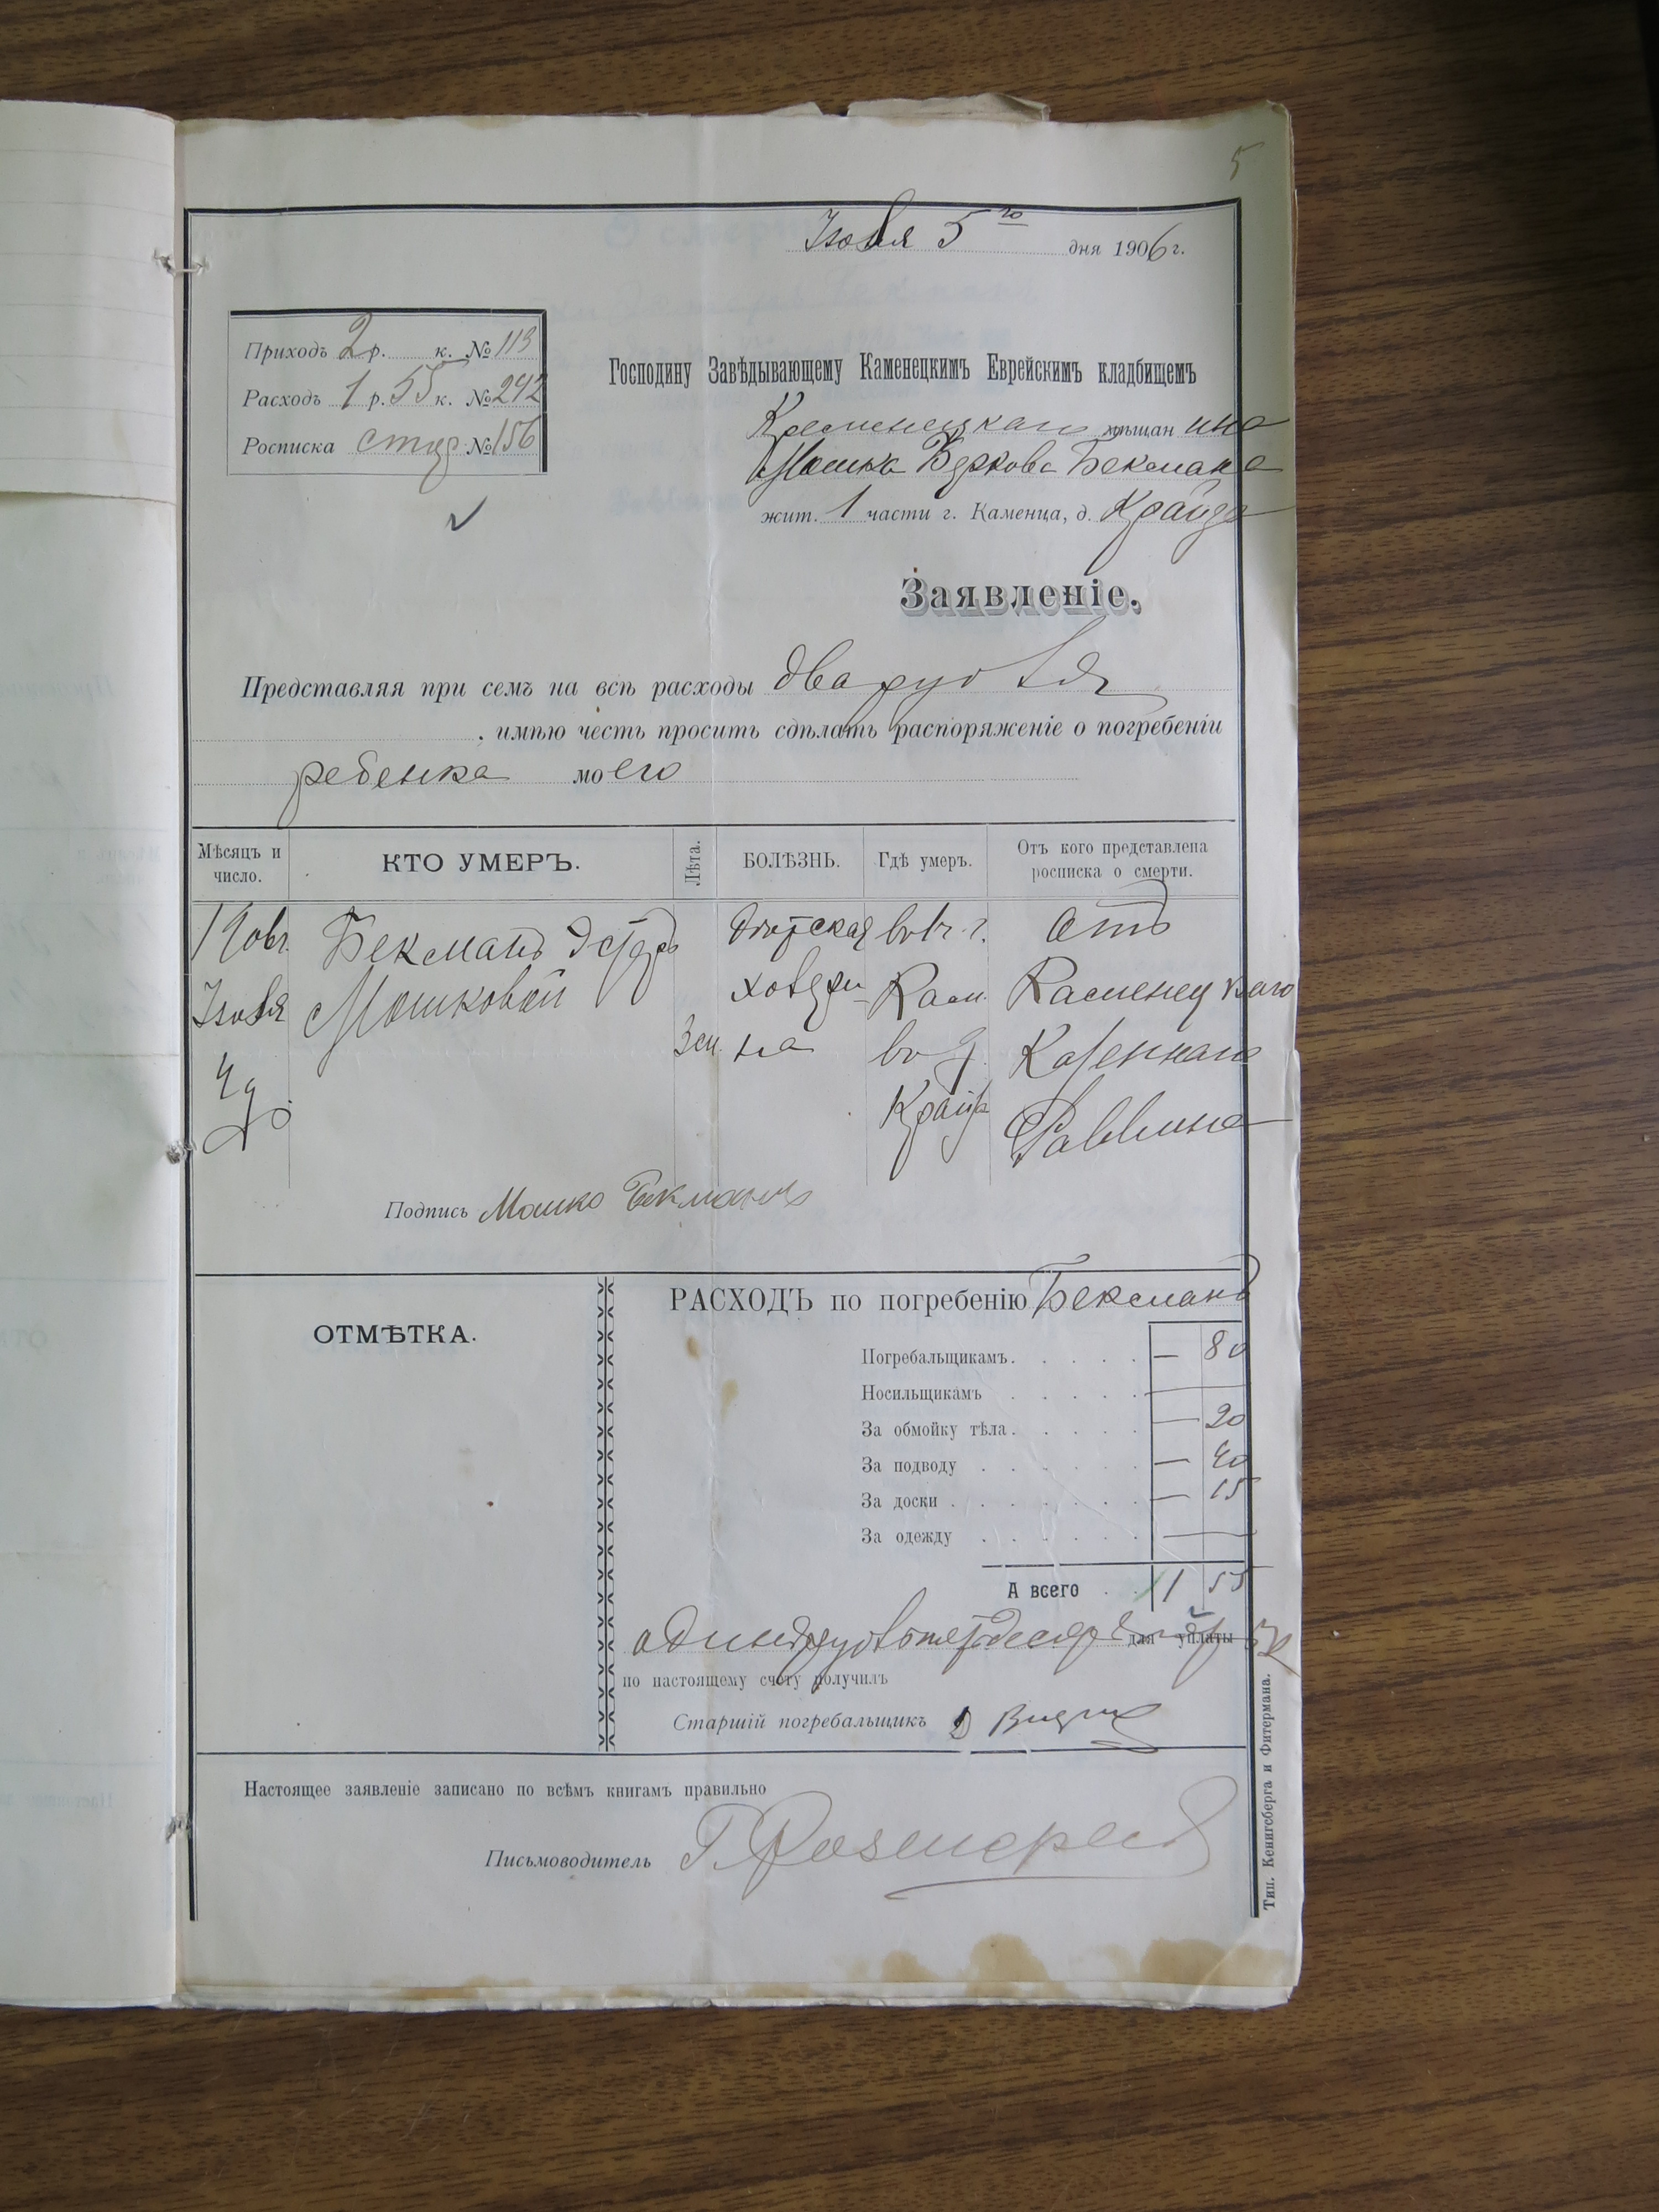 5
Іюля 5го дня 1906 г.
Приходъ 2 р. к. № 113
Расходъ 1 р. 55 к. № 242
Росписка № 156
Господину Завѣдывающему Каменецкимъ Еврейскимъ кладбищемъ
Кременецкаго мѣщанина
Мошка Беркова Бекмана
жит. 1 части г. Каменца, д. Крайза
Заявленіе.
Представляя при семъ на всѣ расходы два рубля
, имѣю честь просить сдѣлать распоряженіе о погребеніи
ребенка моего
Мѣсяцъ и число.
КТО УМЕРЪ.
Лѣта.
БОЛѢЗНЬ.
Гдѣ умеръ.
Отъ кого представлена росписка о смерти.
Бекманъ Эстеръ Дѣтская въ г. Отъ
Іюля Мошковой холери Кам. Каменецкаго
3 м. на въ д. Казеннаго
4 д. Крайза Раввина
Подпись Мошко Бекманъ
ОТМѢТКА.
РАСХОДЪ по погребенію Бекманъ
Погребальщикамъ. — 80
Носильщикамъ —
За обмойку тѣла. — 20
За подводу — 40
За доски — 15
За одежду —
А всего 1 55
одинъ рубль пятьдесят для уплаты
по настоящему счету получилъ
Старшій погребальщикъ
Настоящее заявленіе записано по всѣмъ книгамъ правильно
Письмоводитель
Тип. Кенигсберга и Фитермана.